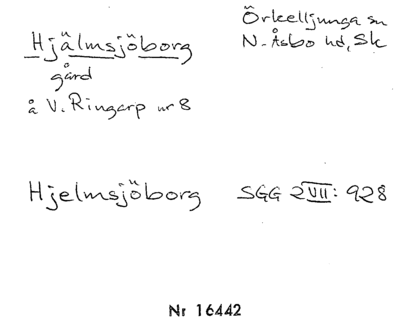 Hjälmsjöborg
gård
å V. Ringarp nr 8
Örkelljunga sn
N. Åsbo hd, Sk
Hjelmsjöborg SGG 2VII: 928
Nr 16442